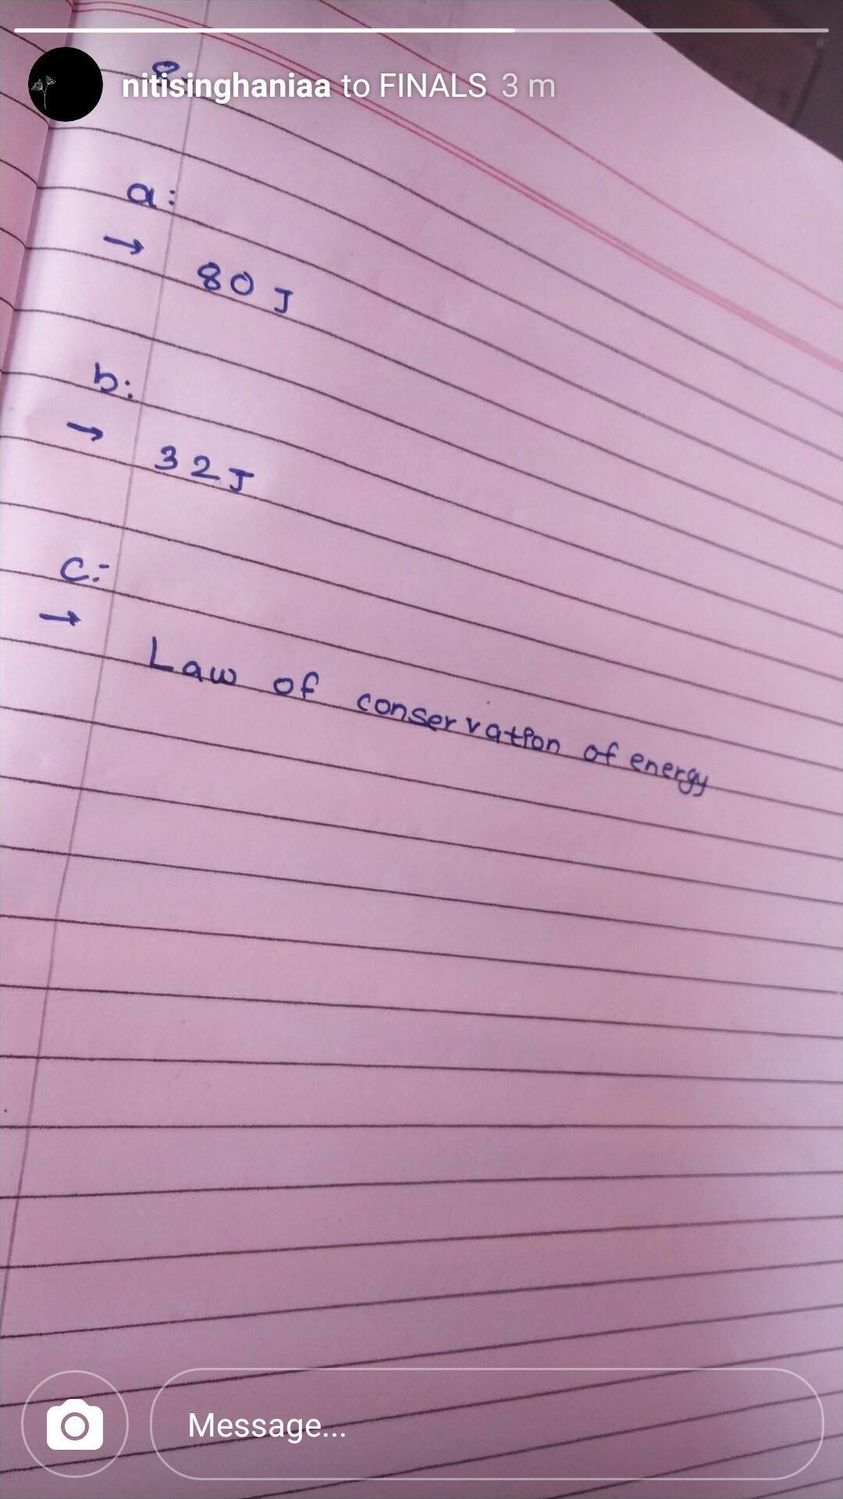 nitisinghaniaa to FINALS 3 m
a:
→ 80 J
b:
→ 32J
c:-
→
Law of conservation of energy
Message...